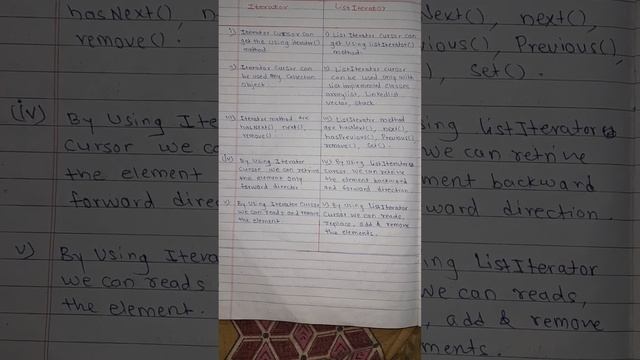 Iterator
ListIterator
i) Iterator Cursor can
get the using iterator()
method.
i) ListIterator Cursor can
get using listIterator()
method.
ii) Iterator Cursor can
be used Any Collection
object
ii) ListIterator cursor
can be used only with
list implemented classes
arraylist, Linkedlist
vector, stack
iii) Iterator method are
hasNext(), next(),
remove().
iii) ListIterator method
are hasNext(), next()
hasPrevious(), Previous()
remove(), Set()
(iv) By Using Iterator
Cursor we can retrive
the element only
forward director
iv) By Using ListIterator
Cursor we can retrive
the element backward
and forward direction.
v) By Using Iterator Cursor
we can reads and remove
the element.
v) By Using ListIterator
Cursor we can reads,
replace, add & remove
the elements.
hasNext()
remove()
(iv) By Using Ite
cursor we ca
the element
forward direc
v) By Using Itera
we can reads
the element.
Next(), next(),
ious(), Previous(),
), Set().
sing listIterator
we can retrive
ment backward
ward direction.
ing ListIterator
we can reads,
, add & remove
ments.